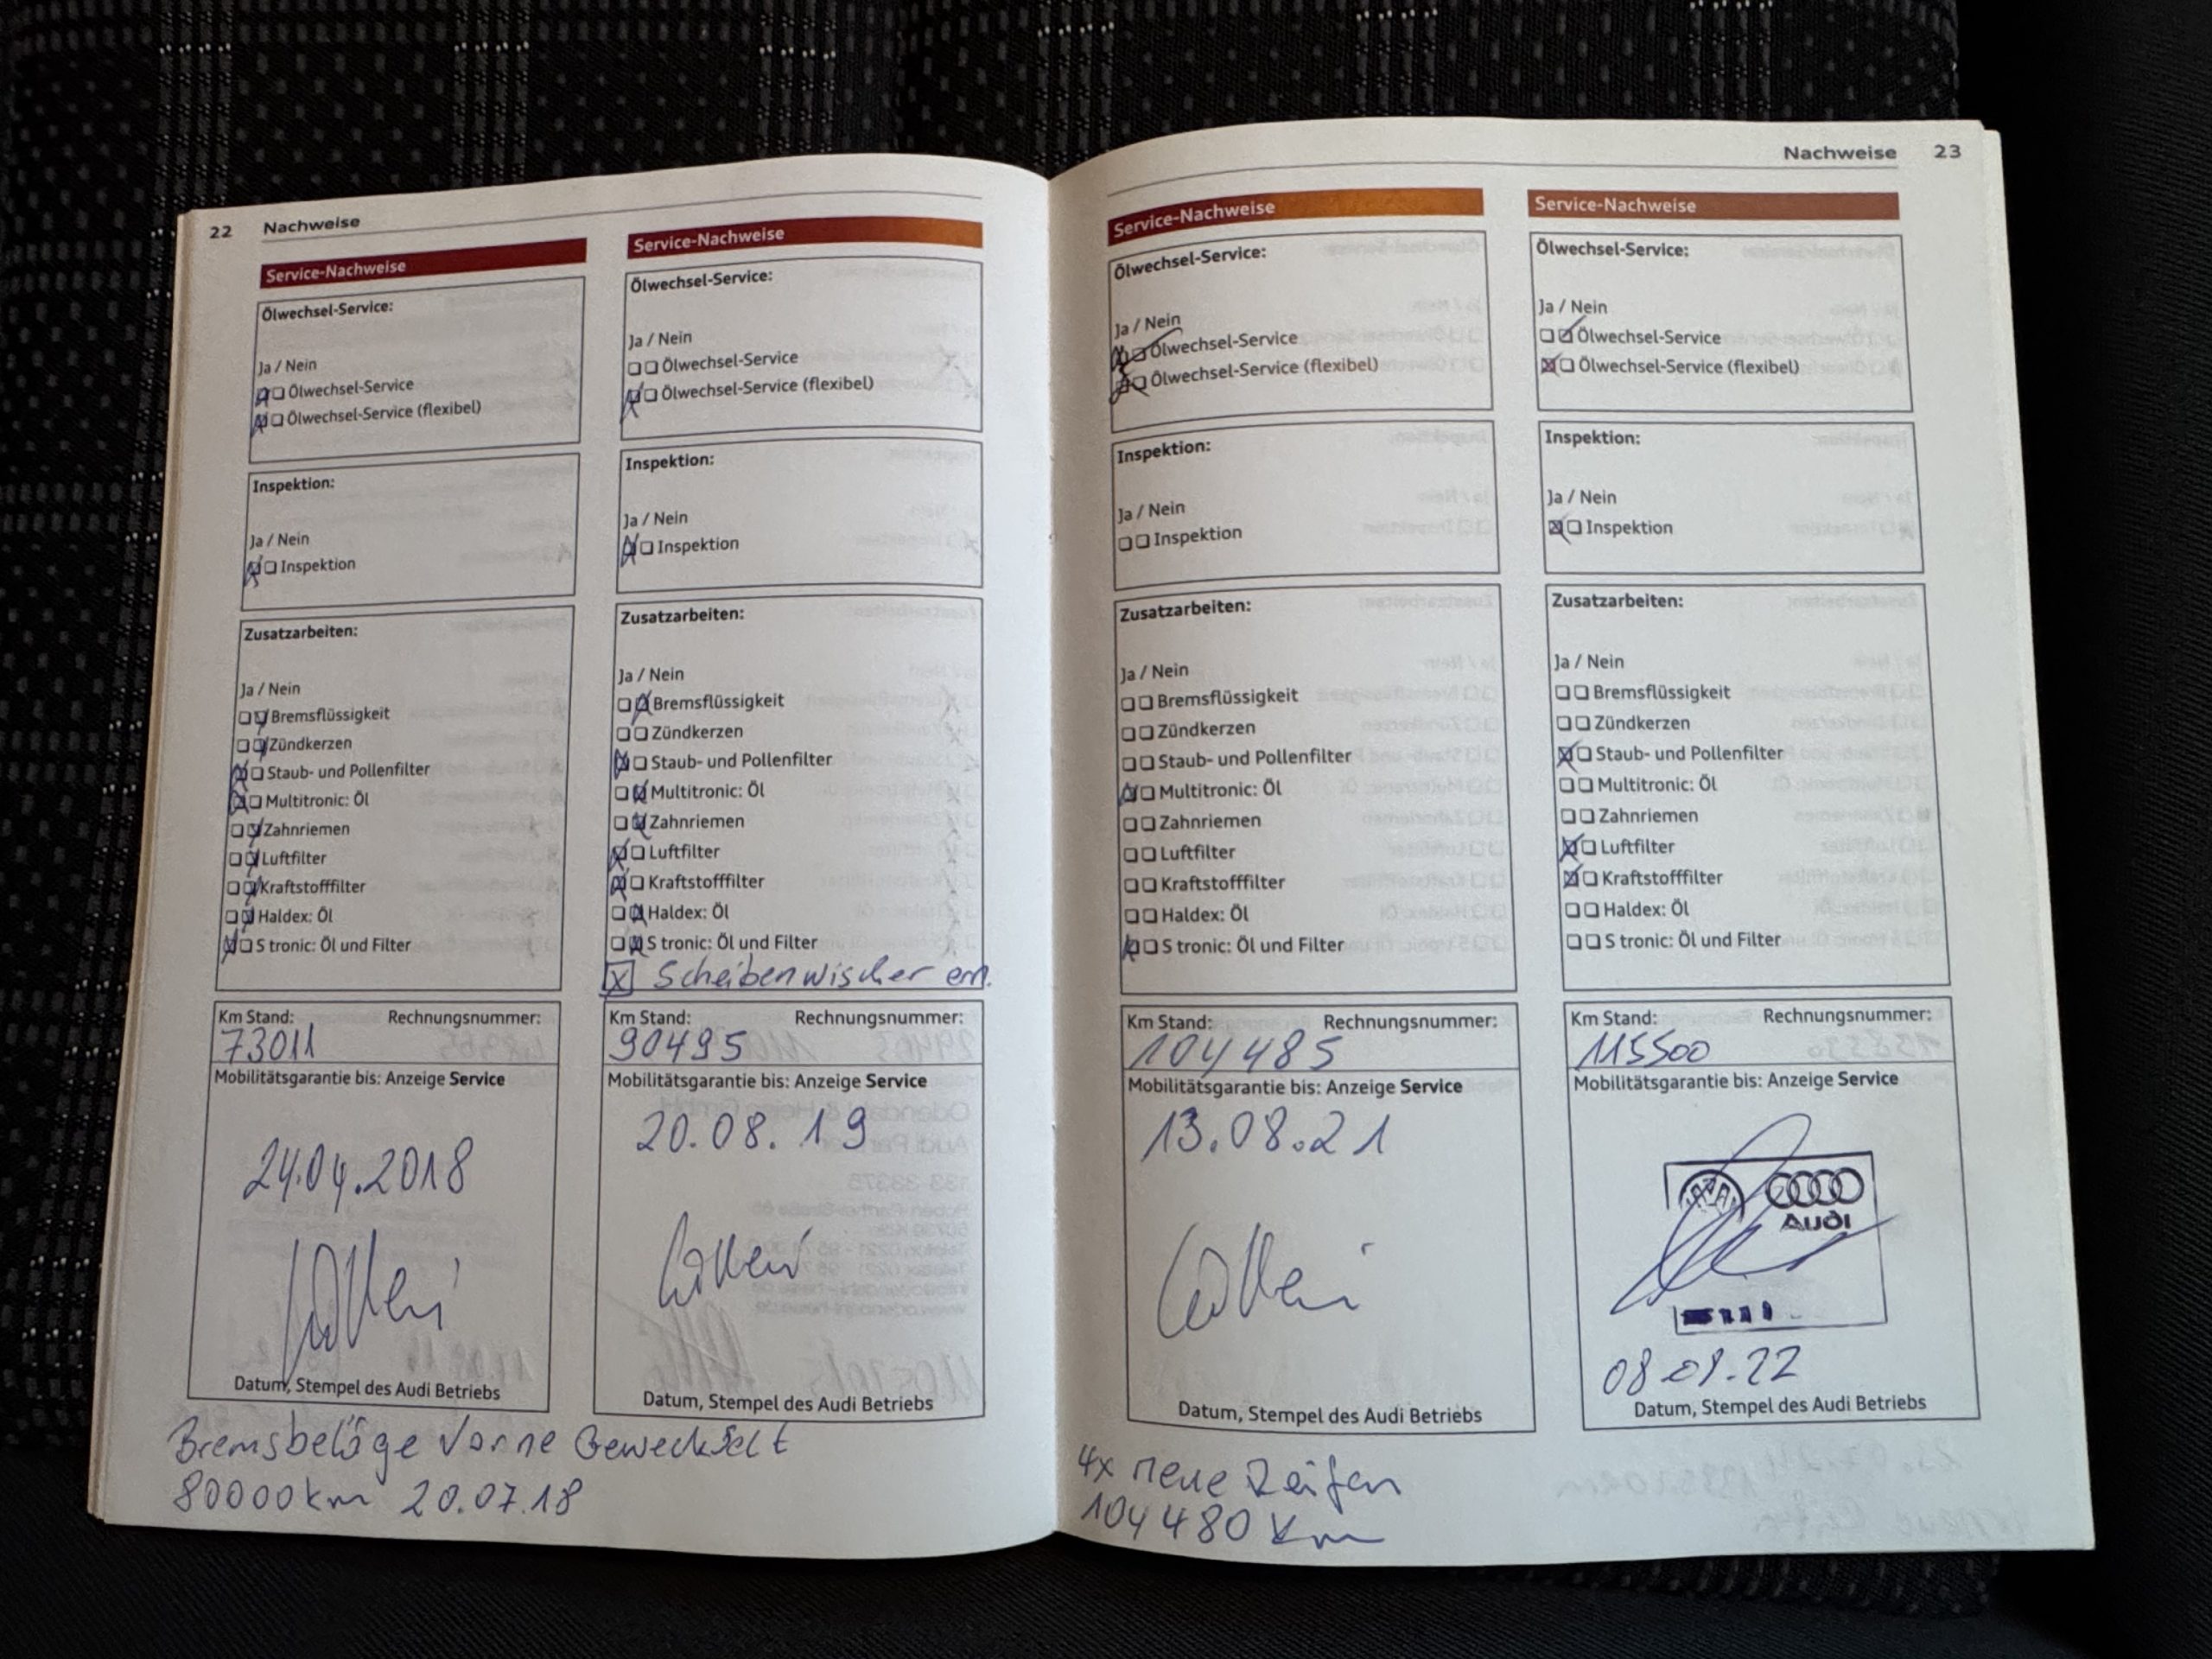 22 Nachweise
Service-Nachweise
Ölwechsel-Service:
Ja / Nein
Ölwechsel-Service
Ölwechsel-Service (flexibel)
Inspektion:
Ja / Nein
Inspektion
Zusatzarbeiten:
Ja / Nein
Bremsflüssigkeit
Zündkerzen
Staub- und Pollenfilter
Multitronic: Öl
Zahnriemen
Luftfilter
Kraftstofffilter
Haldex: Öl
S tronic: Öl und Filter
Km Stand: Rechnungsnummer:
73011
Mobilitätsgarantie bis: Anzeige Service
24.04.2018
Datum, Stempel des Audi Betriebs
Service-Nachweise
Ölwechsel-Service:
Ja / Nein
Ölwechsel-Service
Ölwechsel-Service (flexibel)
Inspektion:
Ja / Nein
Inspektion
Zusatzarbeiten:
Ja / Nein
Bremsflüssigkeit
Zündkerzen
Staub- und Pollenfilter
Multitronic: Öl
Zahnriemen
Luftfilter
Kraftstofffilter
Haldex: Öl
S tronic: Öl und Filter
Scheibenwischer ern.
Km Stand: Rechnungsnummer:
90495
Mobilitätsgarantie bis: Anzeige Service
20.08.19
Datum, Stempel des Audi Betriebs
Bremsbeläge Vorne Gewechselt
80000km 20.07.18
Nachweise 23
Service-Nachweise
Ölwechsel-Service:
Ja / Nein
Ölwechsel-Service
Ölwechsel-Service (flexibel)
Inspektion:
Ja / Nein
Inspektion
Zusatzarbeiten:
Ja / Nein
Bremsflüssigkeit
Zündkerzen
Staub- und Pollenfilter
Multitronic: Öl
Zahnriemen
Luftfilter
Kraftstofffilter
Haldex: Öl
S tronic: Öl und Filter
Km Stand: Rechnungsnummer:
104485
Mobilitätsgarantie bis: Anzeige Service
13.08.21
Datum, Stempel des Audi Betriebs
4x neue Reifen
104480 Km
Service-Nachweise
Ölwechsel-Service:
Ja / Nein
Ölwechsel-Service
Ölwechsel-Service (flexibel)
Inspektion:
Ja / Nein
Inspektion
Zusatzarbeiten:
Ja / Nein
Bremsflüssigkeit
Zündkerzen
Staub- und Pollenfilter
Multitronic: Öl
Zahnriemen
Luftfilter
Kraftstofffilter
Haldex: Öl
S tronic: Öl und Filter
Km Stand: Rechnungsnummer:
115500
Mobilitätsgarantie bis: Anzeige Service
Audi
Datum, Stempel des Audi Betriebs